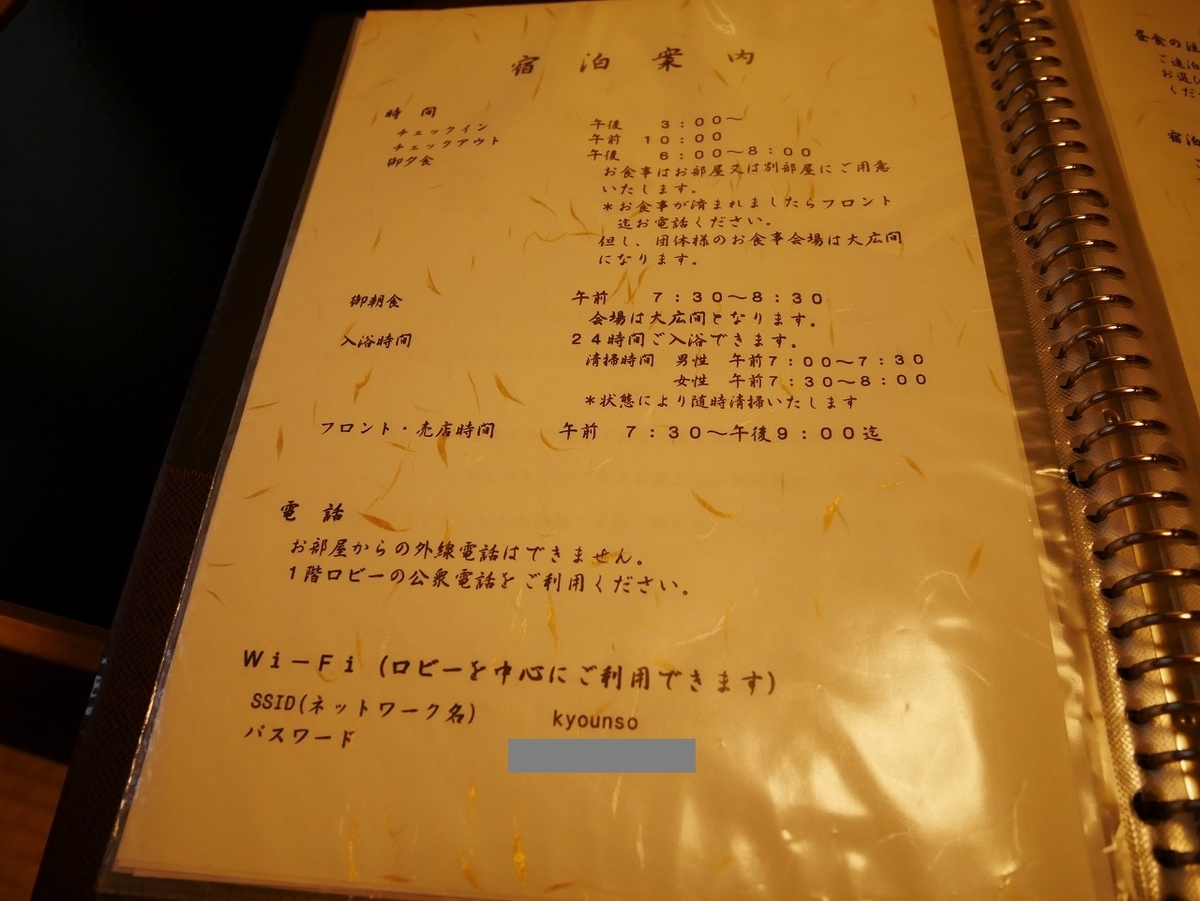 宿泊案内
時間
チェックイン 午後 3:00～
チェックアウト 午前 10:00
御夕食 午後 6:00～8:00
お食事はお部屋又は別部屋にご用意
いたします。
＊お食事が済まれましたらフロント
迄お電話ください。
但し、団体様のお食事会場は大広間
になります。
御朝食 午前 7:30～8:30
会場は大広間となります。
入浴時間 24時間ご入浴できます。
清掃時間 男性 午前7:00～7:30
女性 午前7:30～8:00
＊状態により随時清掃いたします
フロント・売店時間 午前 7:30～午後9:00迄
電話
お部屋からの外線電話はできません。
1階ロビーの公衆電話をご利用ください。
Wi－Fi (ロビーを中心にご利用できます)
SSID(ネットワーク名) kyounso
パスワード
昼食の
お選び
くだ
宿泊